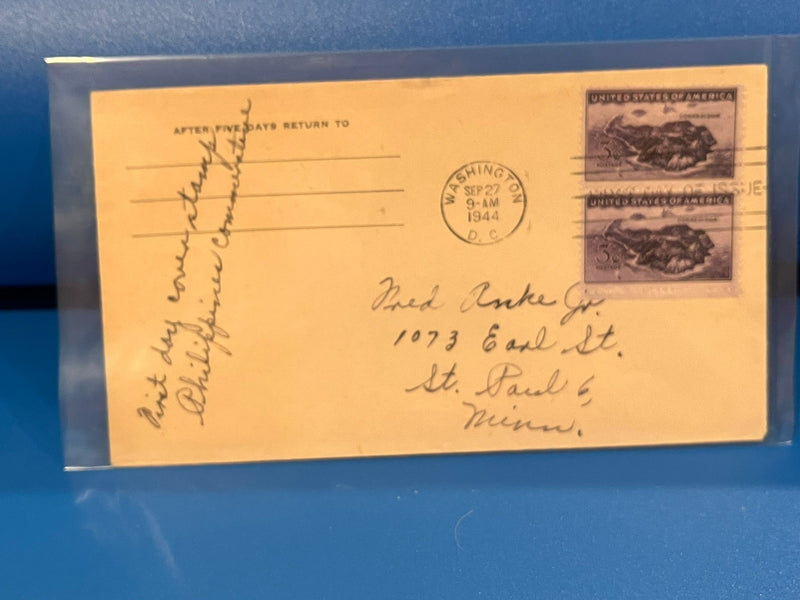 AFTER FIVE DAYS RETURN TO
First day cover stamp
Philippines commorative
WASHINGTON
SEP 27
9-AM
1944
D. C.
UNITED STATES OF AMERICA
CORREGIDOR
3¢
POSTAGE
DAY OF ISSUE
UNITED STATES OF AMERICA
CORREGIDOR
3¢
POSTAGE
Fred Anke Jr.
1073 Earl St.
St. Paul 6,
Minn.